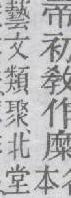 帝初教作糜
藝文類聚北堂